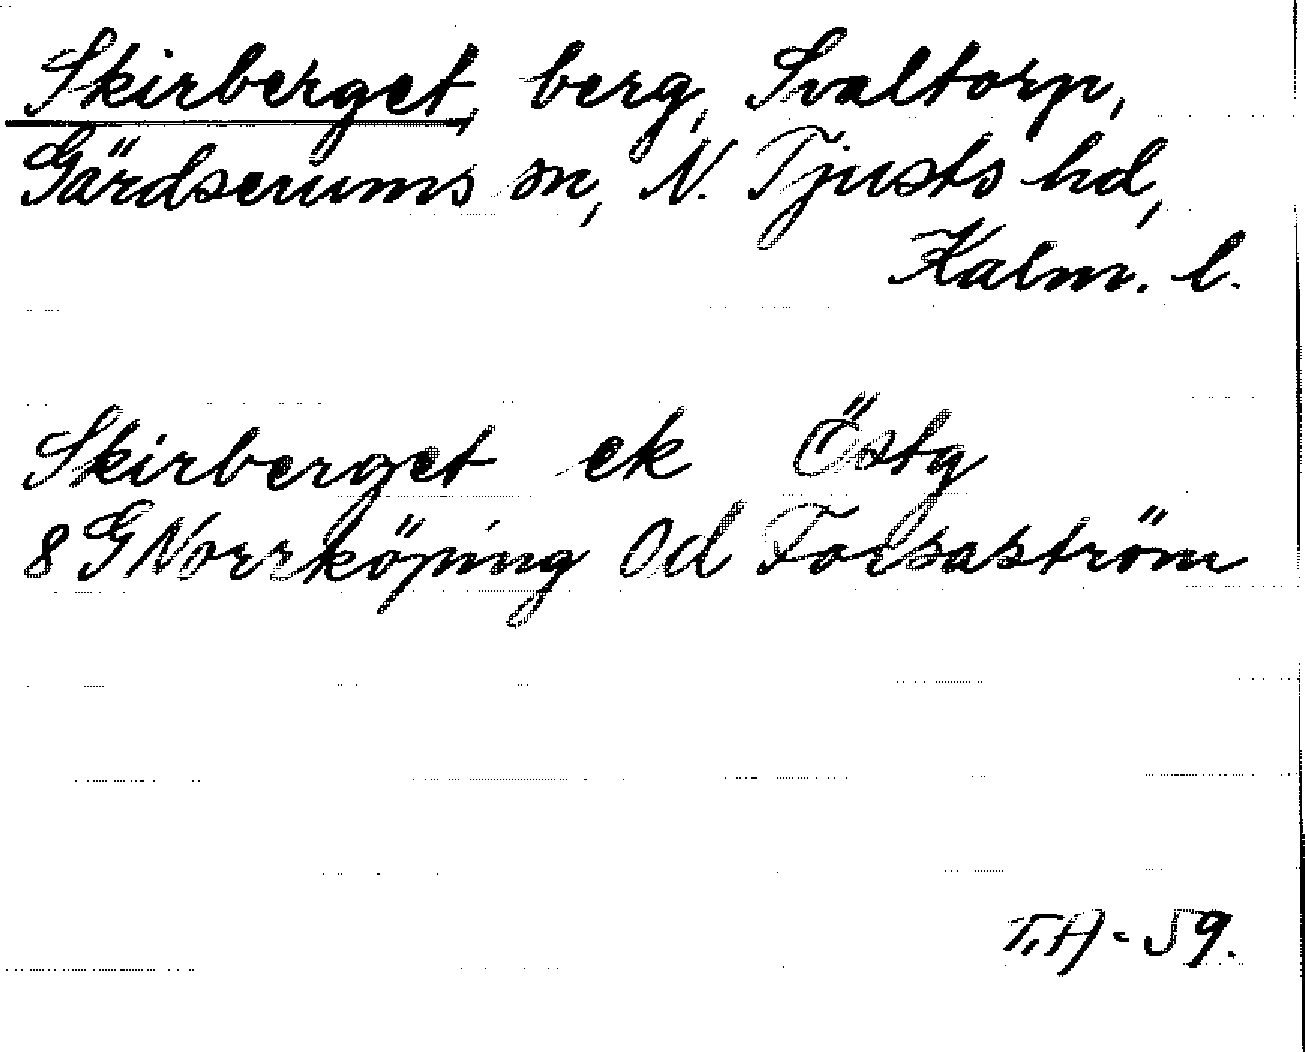 Skirberget, berg, Svaltorp,
Gärdserums sn, N. Tjusts hd,
Kalm. l.
Skirberget ek Östg
8G Norrköping Od Forsaström
T.A-59.